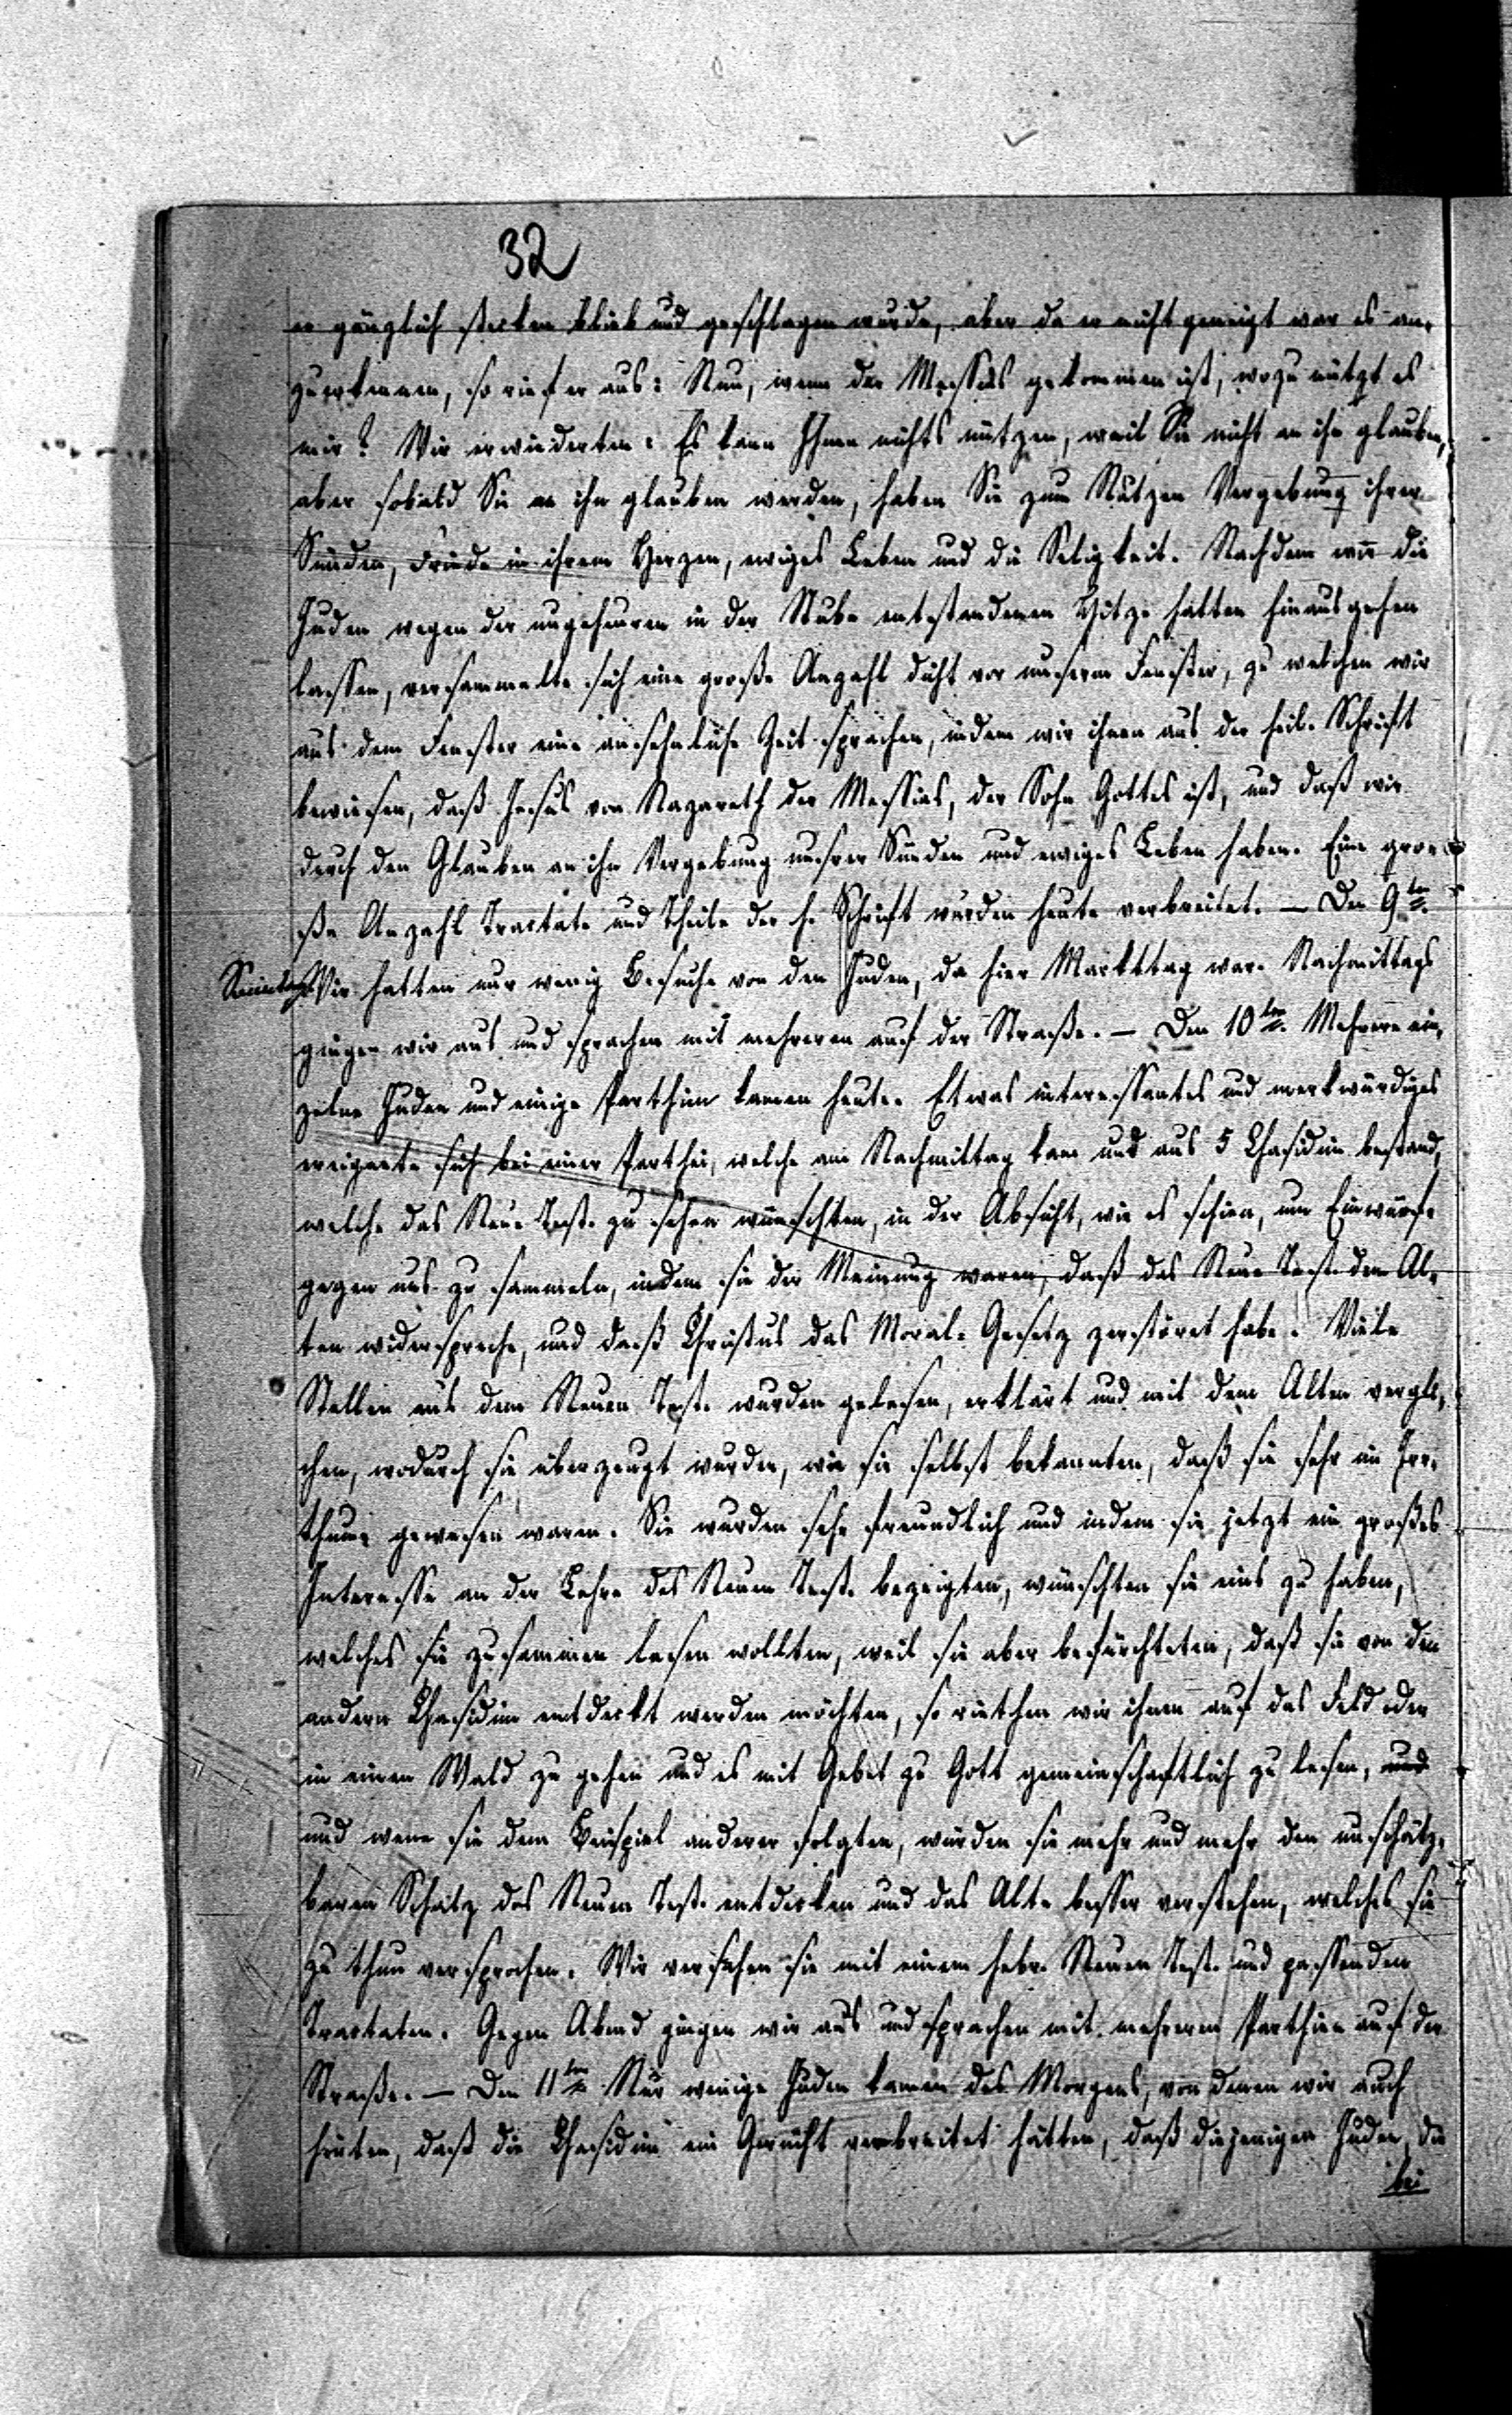 32
er gänzlich stecken blieb und geschlagen wurde, aber da er nicht geneigt war es an-
zuerkennen, so rief er aus: Nun, wenn der Messias gekommen ist, wozu nützt es
mir? Wir erwiederten: Es kann Ihnen nichts nützen, weil Sie nicht an ihn glauben,
aber sobald Sie an ihn glauben werden, haben Sie zum Nutzen Vergebung ihrer
Sünden, Friede in ihrem Herzen, ewiges Leben und die Seligkeit. Nachdem wir die
Juden wegen der ungeheuren in der Stube entstandenen Hitze hatten hinausgehen
lassen, versammelte sich eine große Anzahl dicht vor unserm Fenster, zu welchen wir
aus dem Fenster eine ansehnliche Zeit sprachen, indem wir ihnen aus der heil. Schrift
bewiesen, daß Jesus von Nazareth der Messias, der Sohn Gottes ist, und daß wir
durch den Glauben an ihn Vergebung unsrer Sünden und ewiges Leben haben. Eine gro-
ße Anzahl Tractate und Theile der h. Schrift wurden heute verbreitet. — Den 9ten
Sonntag Wir hatten nur wenig Besuche von den Juden, da hier Markttag war. Nachmittags
gingen wir aus und sprachen mit mehreren auf der Straße. — Den 10ten Mehrere ein-
zelne Juden und einige Parthien kamen heute. Etwas interessantes und merkwürdiges
ereignete sich bei einer Parthei, welche am Nachmittag kam und aus 5 Chasidim bestand,
welche das Neue Test. zu sehen wünschten, in der Absicht, wie es schien, um Einwürfe
gegen uns zu sammeln, indem sie der Meinung waren, daß das Neue Test. dem Al-
ten widerspreche, und daß Christus das Moral-Gesetz zerstöret habe. Viele
Stellen aus dem Neuen Test. wurden gelesen, erklärt und mit dem Alten vergli-
chen, wodurch sie überzeugt wurden, wie sie selbst bekannten, daß sie sehr im Irr-
thum gewesen waren. Sie wurden sehr freundlich und indem sie jetzt ein großes
Interesse an der Lehre des Neuen Test. bezeigten, wünschten sie eins zu haben,
welches sie zusammen lesen wollten, weil sie aber befürchteten, daß sie von den
andern Chasidim entdeckt werden möchten, so riethen wir ihnen auf das Feld oder
in einen Wald zu gehen und es mit Gebet zu Gott gemeinschaftlich zu lesen, und
und wenn sie dem Beispiel anderer folgten, würden sie mehr und mehr den unschätz-
baren Schatz des Neuen Test. entdecken und das Alte besser verstehen, welches sie
zu thun versprachen. Wir versahen sie mit einem hebr. Neuen Test. und passenden
Tractaten. Gegen Abend gingen wir aus und sprachen mit mehreren Parthien auf der
Straße. — Den 11ten Nur wenige Juden kamen des Morgens, von denen wir auch
hörten, daß die Chasidim ein Gerücht verbreitet hätten, daß diejenigen Juden, die
bei